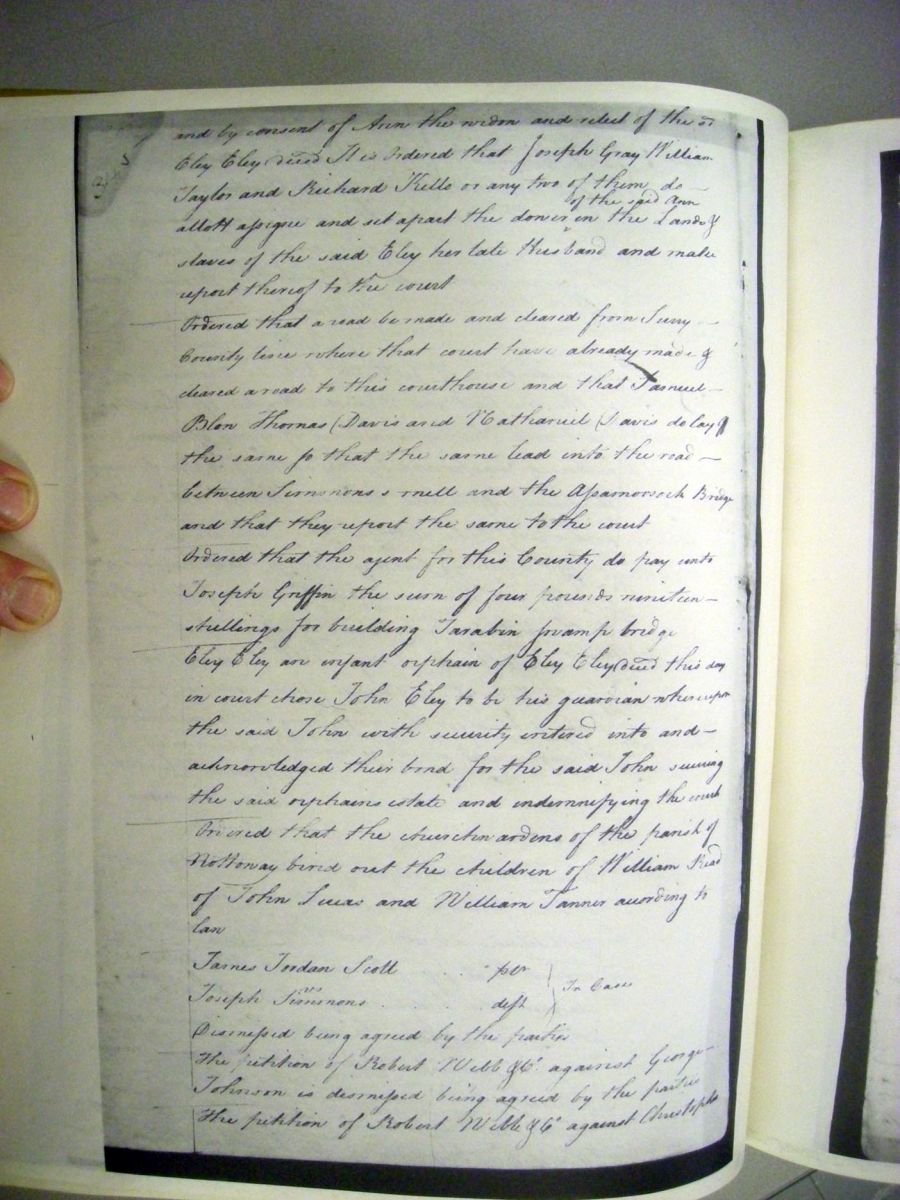 and by consent of Ann the widow and relect of the sd
Eley Eley decd It is Ordered that Joseph Gray William
Taylor and Richard Kello or any two of them do —
of the said Ann
allott assigne and set apart the dower in the Lands &
slaves of the said Eley her late Husband and make
report thereof to the court
Ordered that a road be made and cleared from Surry —
County line where that court have already made &
cleared a road to this courthouse and that Samuel —
Blow Thomas Davis and Nathaniel Davis do lay
the same so that the same lead into the road —
between Simmons s mill and the Assamoosock Bridge
and that they report the same to the court
Ordered that the agent for this County do pay unto
Joseph Griffin the sum of four pounds nineteen —
shillings for building Tarabin swamp bridge
Eley Eley an infant orphain of Eley Eley decd this day
in court chose John Eley to be his guardian whereupon
the said John with security entered into and —
acknowledged their bond for the said John
the said orphains estate and indemnifying the court
Ordered that the churchwardens of the parish of
Nottoway bind out the children of William Read
of John Lucas and William Tanner according to
law
James Jordan Scott . . . pltr
vs In Case
Joseph Simmons . . . deft
Dismissed being agreed by the parties
The petition of Robert Webb & Co. against George —
Johnson is dismissed being agreed by the parties
The petition of Robert Webb & Co against Christopher